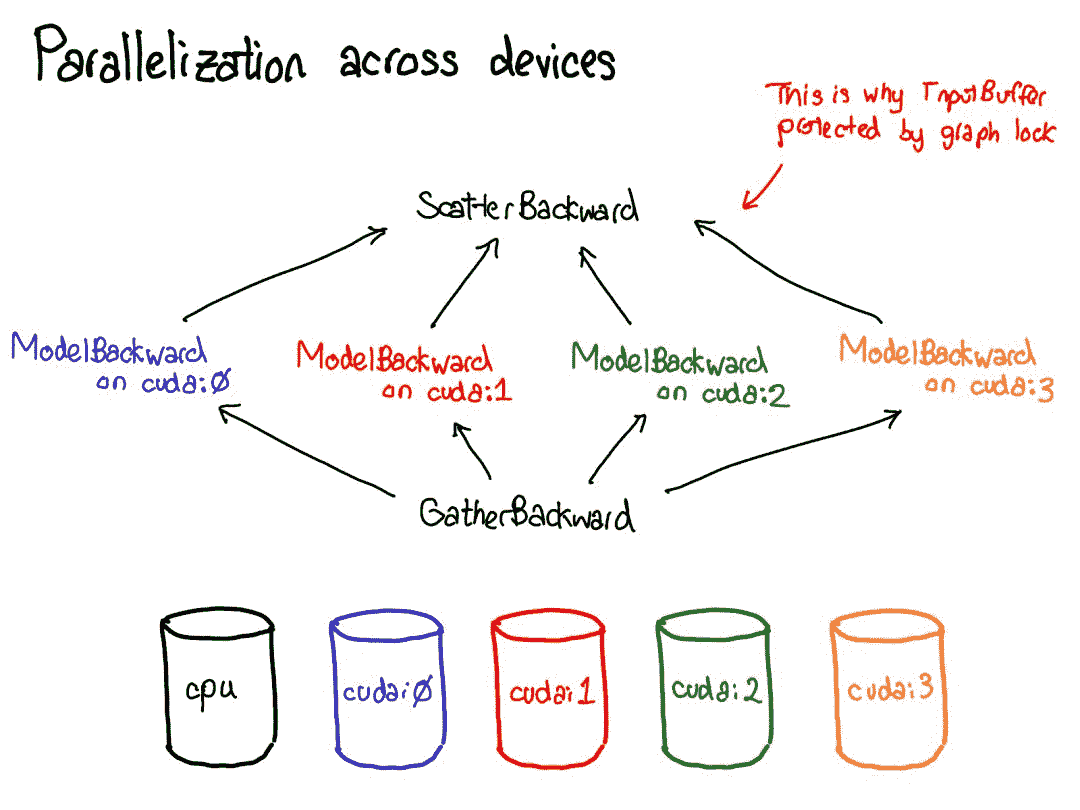 Parallelization across devices
This is why InputBuffer
protected by graph lock
ScatterBackward
ModelBackward
on cuda:0
ModelBackward
on cuda:1
ModelBackward
on cuda:2
ModelBackward
on cuda:3
GatherBackward
cpu
cuda:0
cuda:1
cuda:2
cuda:3